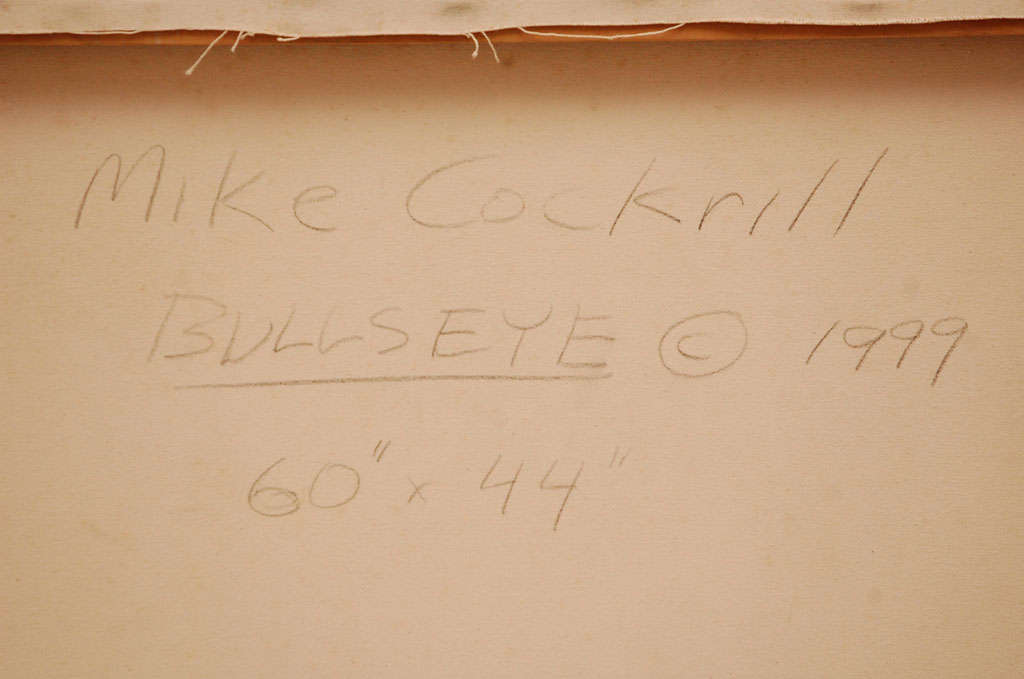 Mike Cockrill
BULLSEYE © 1999
60" x 44"